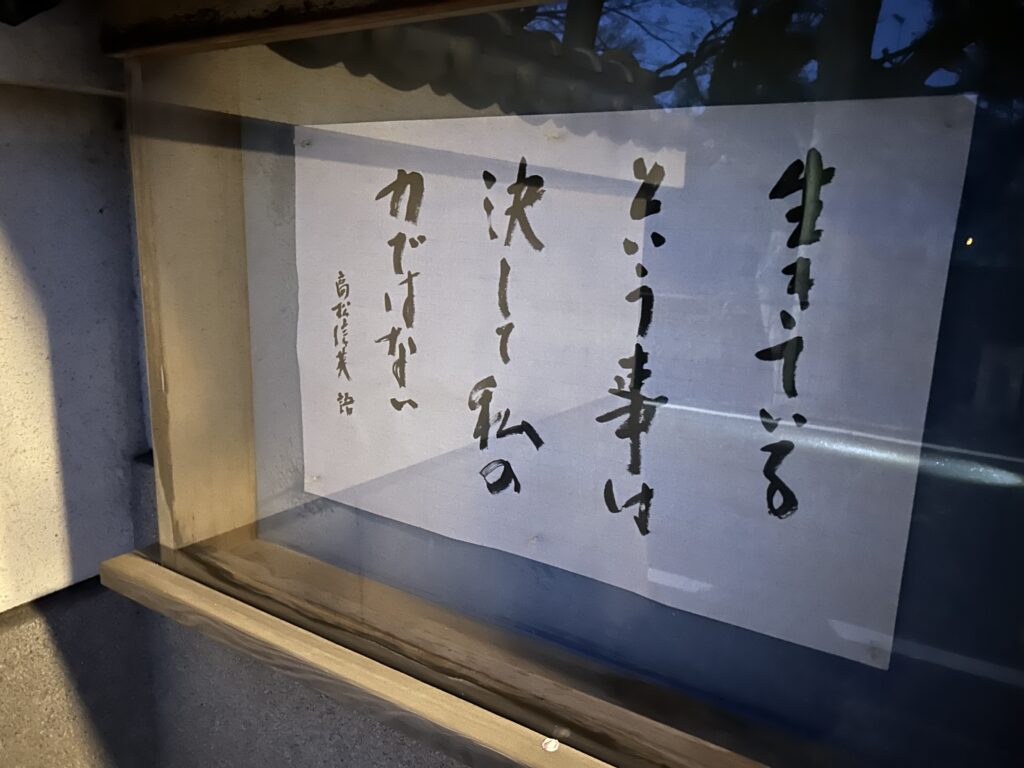 生きている
という事は
決して私の
力ではない
高松信英 語